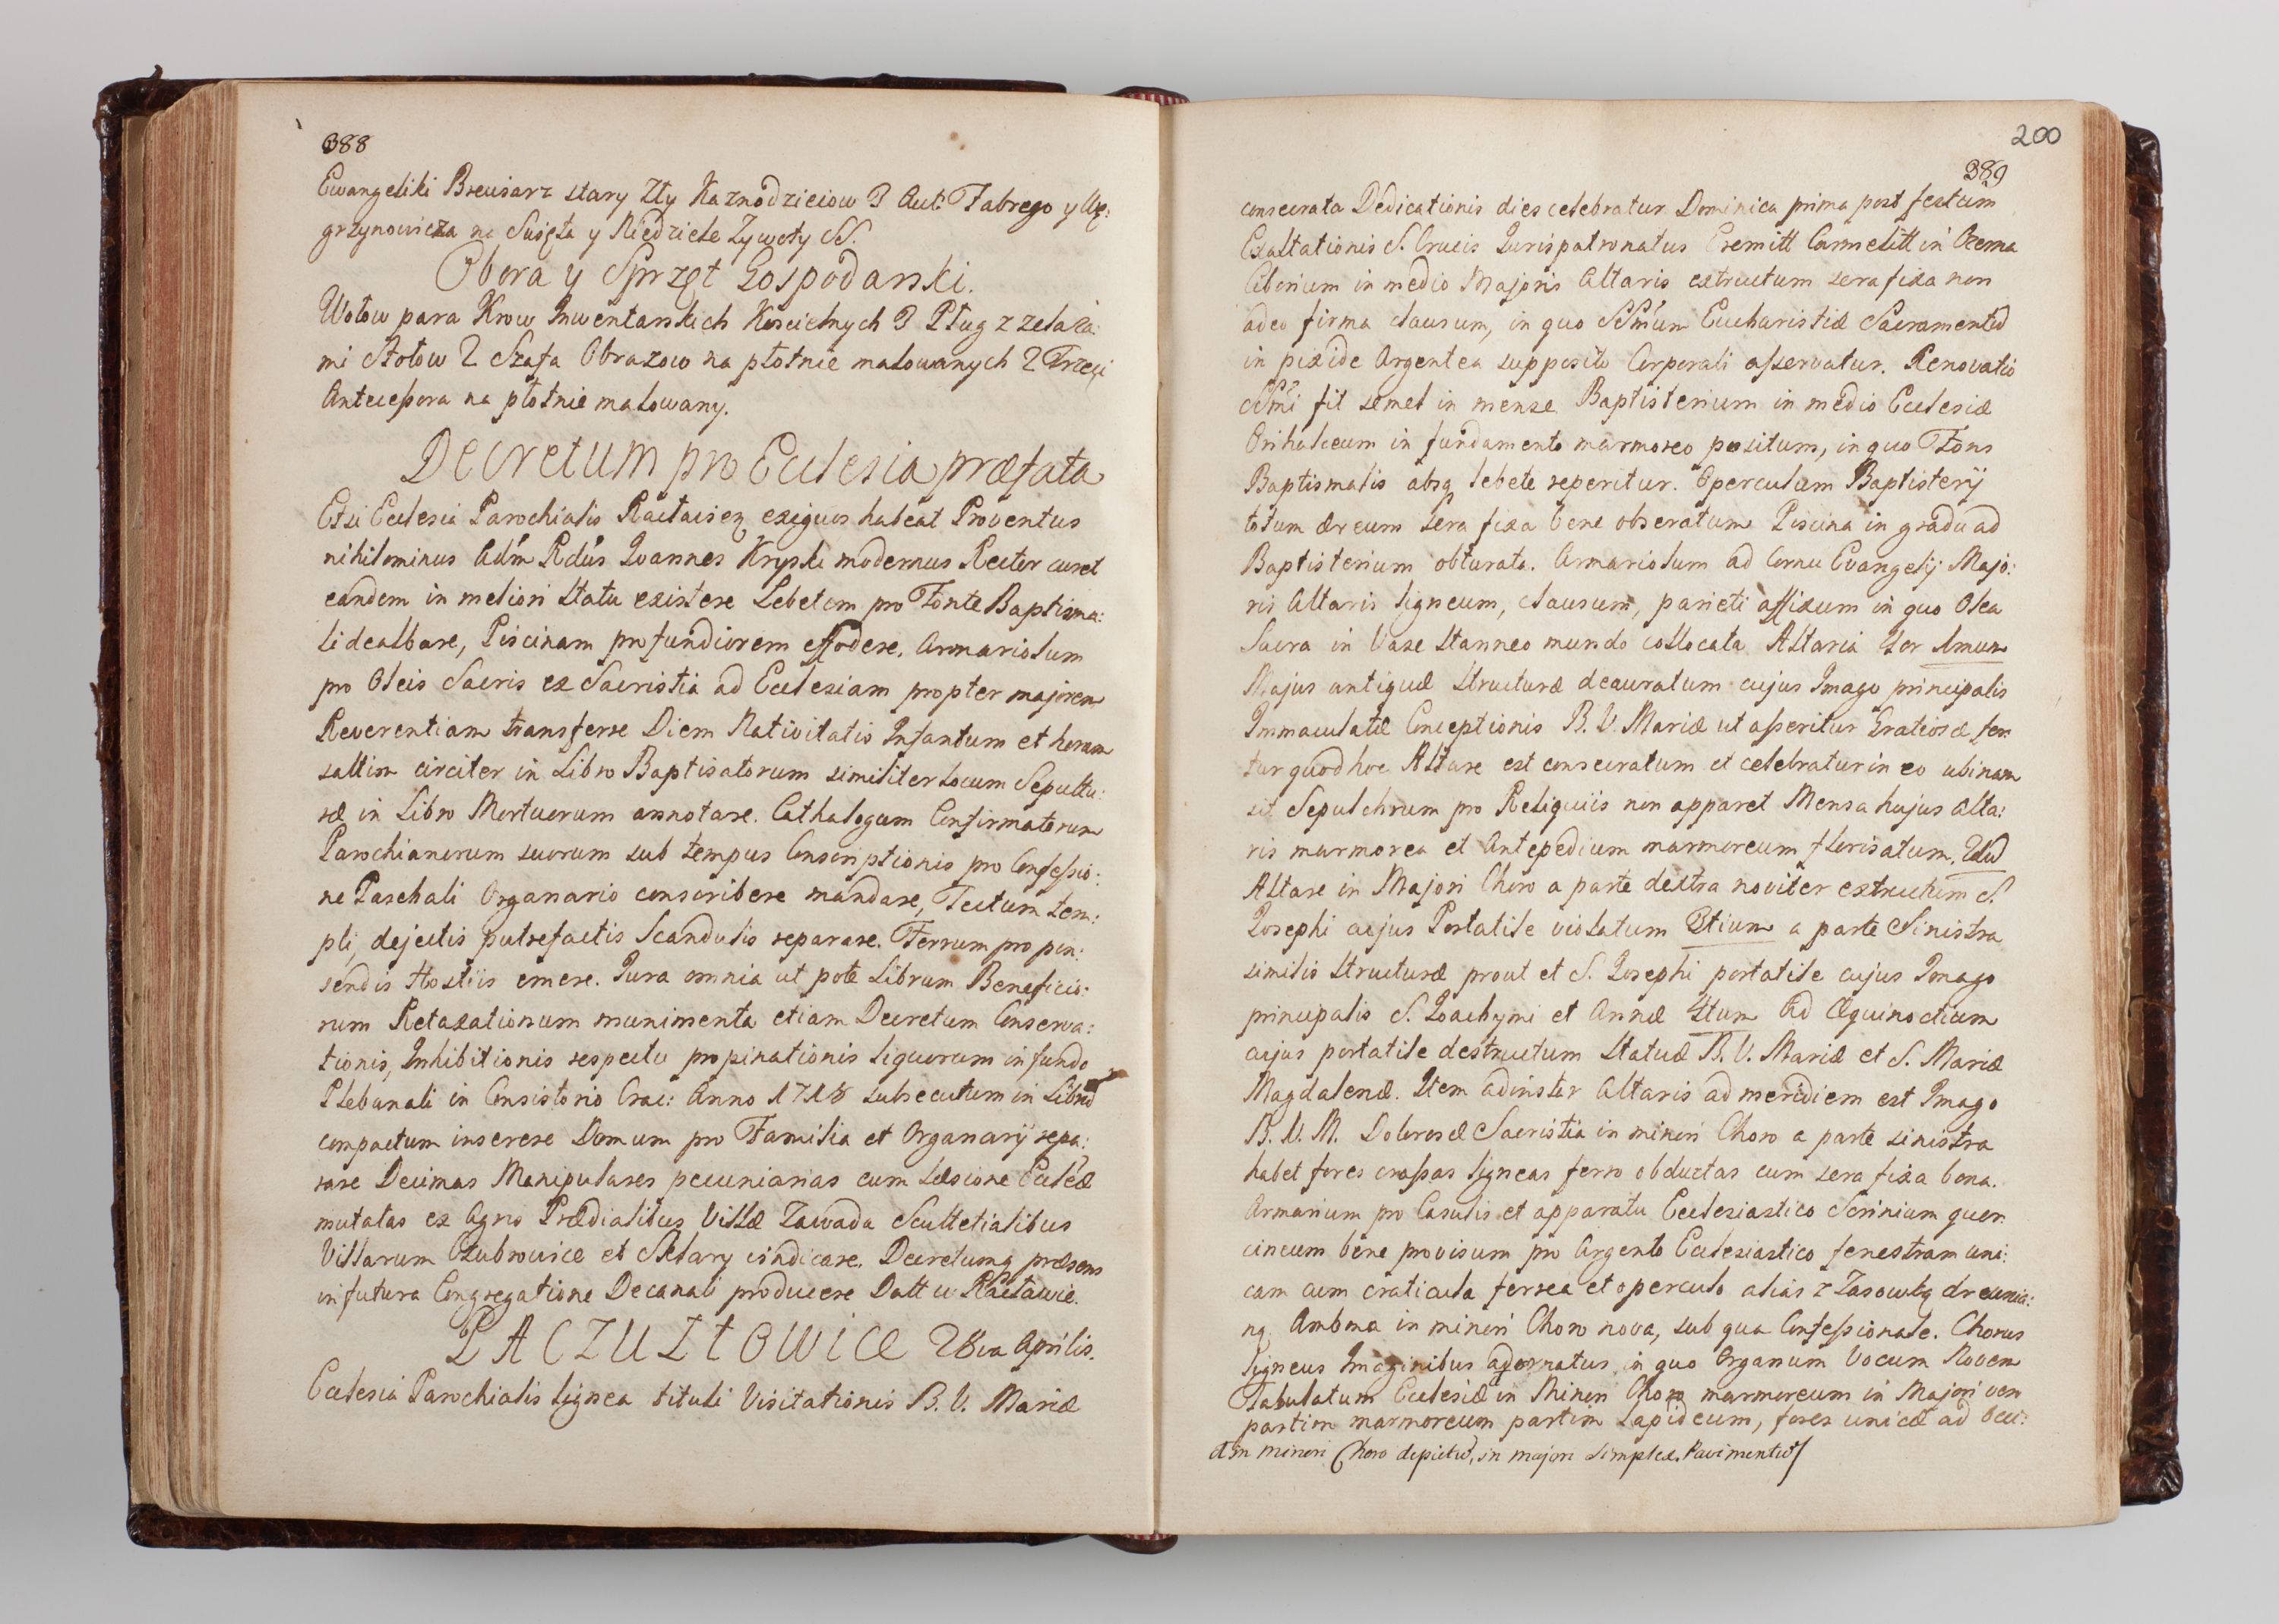 388
Ewangeliki Brewiarz stary Zły Kaznodzieiow 3 Aut: Fabrego y Wę:
grzynowicza na Swięta y Niedziele Zywoty SS.
Obora y Sprzęt Gospodarski.
Wołow para Krow Inwentarskich Koscielnych 3 Pług z zelaza:
mi Stołow 2 Szafa Obrazow na płotnie malowanych 2 Trzeci
Antecessora na płotnie malowany.
Decretum pro Ecclesia præfata
Etsi Ecclesia Parochialis Racłavicen exiguos habeat Proventus
nihilominus Adm Rdus Joannes Krypski modernus Rector curet
eandem in meliori statu existere Lebetem pro Fonte Baptisma:
li dealbare, Piscinam profundiorem effodere. Armariolum
pro Oleis Sacris ex Sacristia ad Ecclesiam propter majorem
Reverentiam transferre Diem Nativitatis Infantum et horam
saltim circiter in Libro Baptisatorum similiter Locum Sepultu:
ræ in Libro Mortuorum annotare. Cathalogum Confirmatorum
Parochianorum suorum sub tempus Conscriptionis pro Confessio:
ne Paschali Organario conscribere mandare, Tectum tem:
pli, dejectis putrefactis Scandulis reparare. Ferrum pro pin:
sendis Hostiis emere. Jura omnia ut pote Librum Beneficio:
rum Retaxationum munimenta etiam Decretum Conserva:
tionis, Inhibitionis respectu propinationis liquorum in fundo
Plebanali in Consistorio Crac: Anno 1718 subsecutum in Librũ
compactum inserere Domum pro Familia et Organarij repa:
rare Decimas Manipulares pecuniarias cum Læsione Eccleæ
mutatas ex Agris Prædialibus Villæ Zawada Scultetialibus
Villarum Czubrowice et Sklary vindicare. Decretumq præsens
in futura Congregatione Decanali producere Datt u Racławic.
PACZUŁTOWICE 28va Aprilis.
Ecclesia Parochialis lignea tituli Visitationis B. V. Mariæ
200
389
consecrata Dedicationis dies celebratur Dominica prima post festum
Exaltationis S. Crucis Jurispatronatus Eremitt Carmelitt in Czerna
Ciborium in medio Majoris Altaris extructum sera fixa non
adeo firma clausum, in quo SSmum Eucharistiæ Sacramentũ
in pixide Argentea supposito Corporali asservatur. Renovatio
SSmi fit semel in mense Baptisterium in medio Ecclesiæ
Orihalceum in fundamento marmoreo positum, in quo Fons
Baptismalis absq lebete reperitur. Operculum Baptisterij
totum æreum sera fixa bene obseratum Piscina in gradu ad
Baptisterium obturata. Armariolum ad Cornu Evangelij Majo:
ris Altaris ligneum, clausum, parieti affixum in quo Olea
Sacra in Vase stanneo mundo collocata Altaria 4or 1mum
Majus antiquæ structuræ deauratum cujus Imago principalis
Immaculatæ Conceptionis B. V. Mariæ ut asseritur Gratiosæ fer:
tur quod hoc Altare est consecratum et celebratur in eo ubinam
sit Sepulchrum pro Reliquiis non apparet Mensa hujus Alta:
ris marmorea et Antepedium marmoreum florisatum. 2dũ
Altare in Majori Choro a parte dextra noviter extructum S.
Josephi cujus Portatile violatum 3tium a parte Sinistra
similis structuræ prout et S. Josephi portatile cujus Imago
principalis S. Joachymi et Annæ 4tum Ad Æquinoctium
cujus portatile destructum Statuæ B. V. Mariæ et S. Mariæ
Magdalenæ. Item ad instar Altaris ad meridiem est Imago
B. V. M. Dolorosæ Sacristia in minori Choro a parte sinistra
habet fores crassas ligneas ferro obductas cum sera fixa bona.
Armarium pro Casulis et apparatu Ecclesiastico Scrinium quer:
cineum bene provisum pro Argento Ecclesiastico fenestram uni:
cam cum craticula ferrea et operculo alias z Zasowką drewnia:
ną Ambona in minori Choro nova, sub qua Confessionale. Chorus
ligneus Imaginibus adornatus in quo Organum Vocum Novem
Tabulatum Ecclesiæ in Minori Choro marmoreum in Majori vero
partim marmoreum partim Lapideum, fores unicæ ad Occi:
in minori Choro depictũ, in majori simplex. Pavimentũ